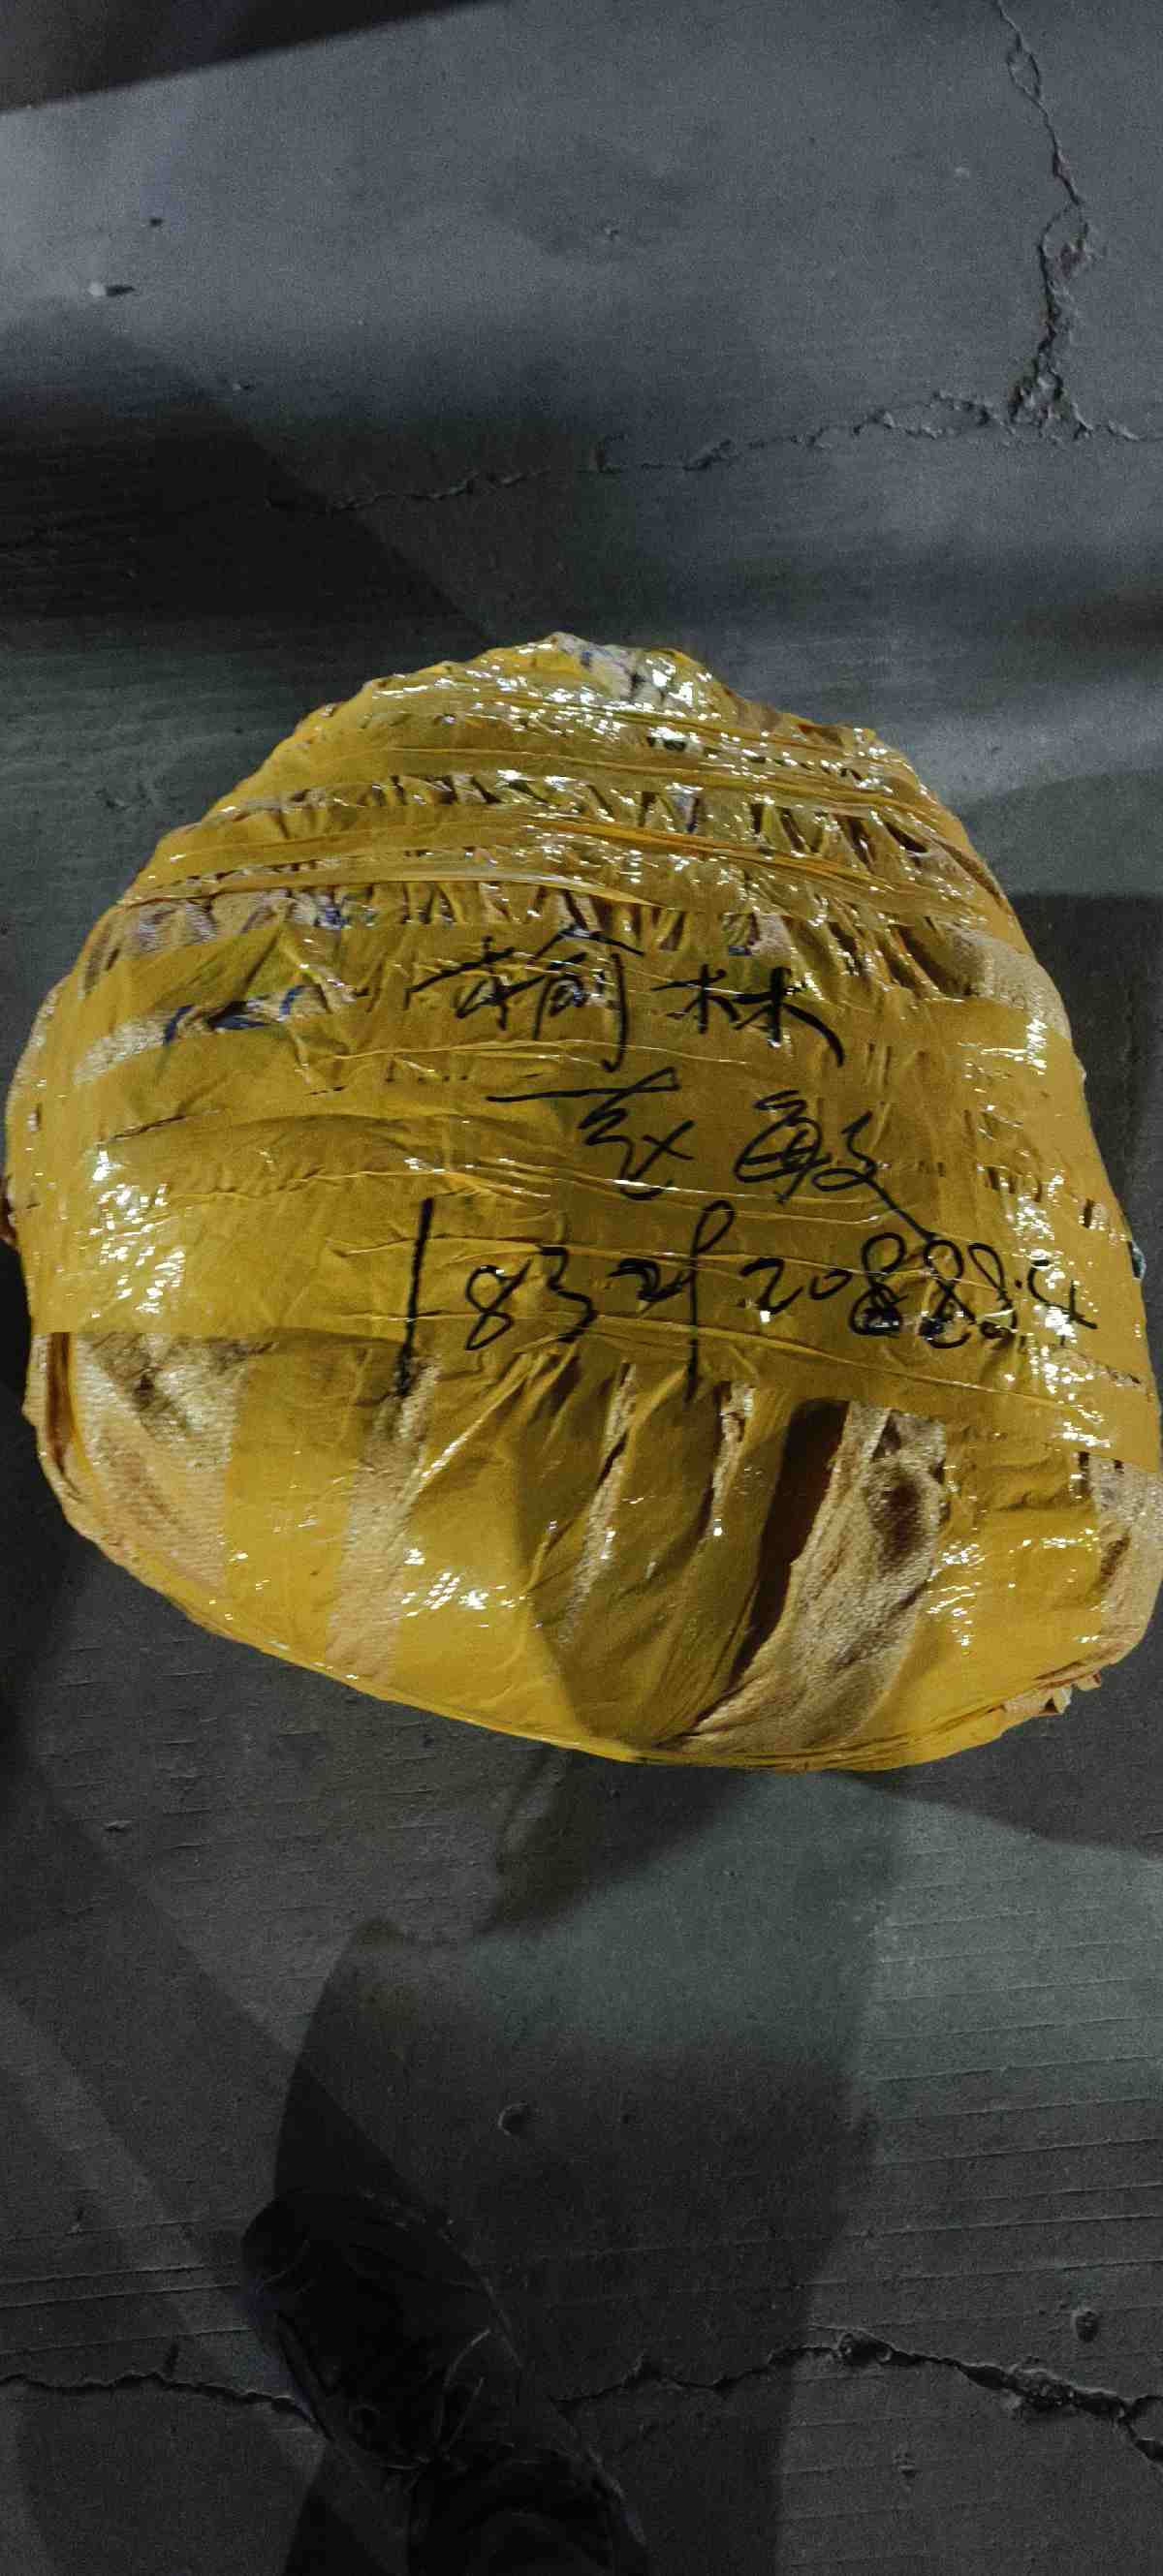 榆林
敏
183292088854